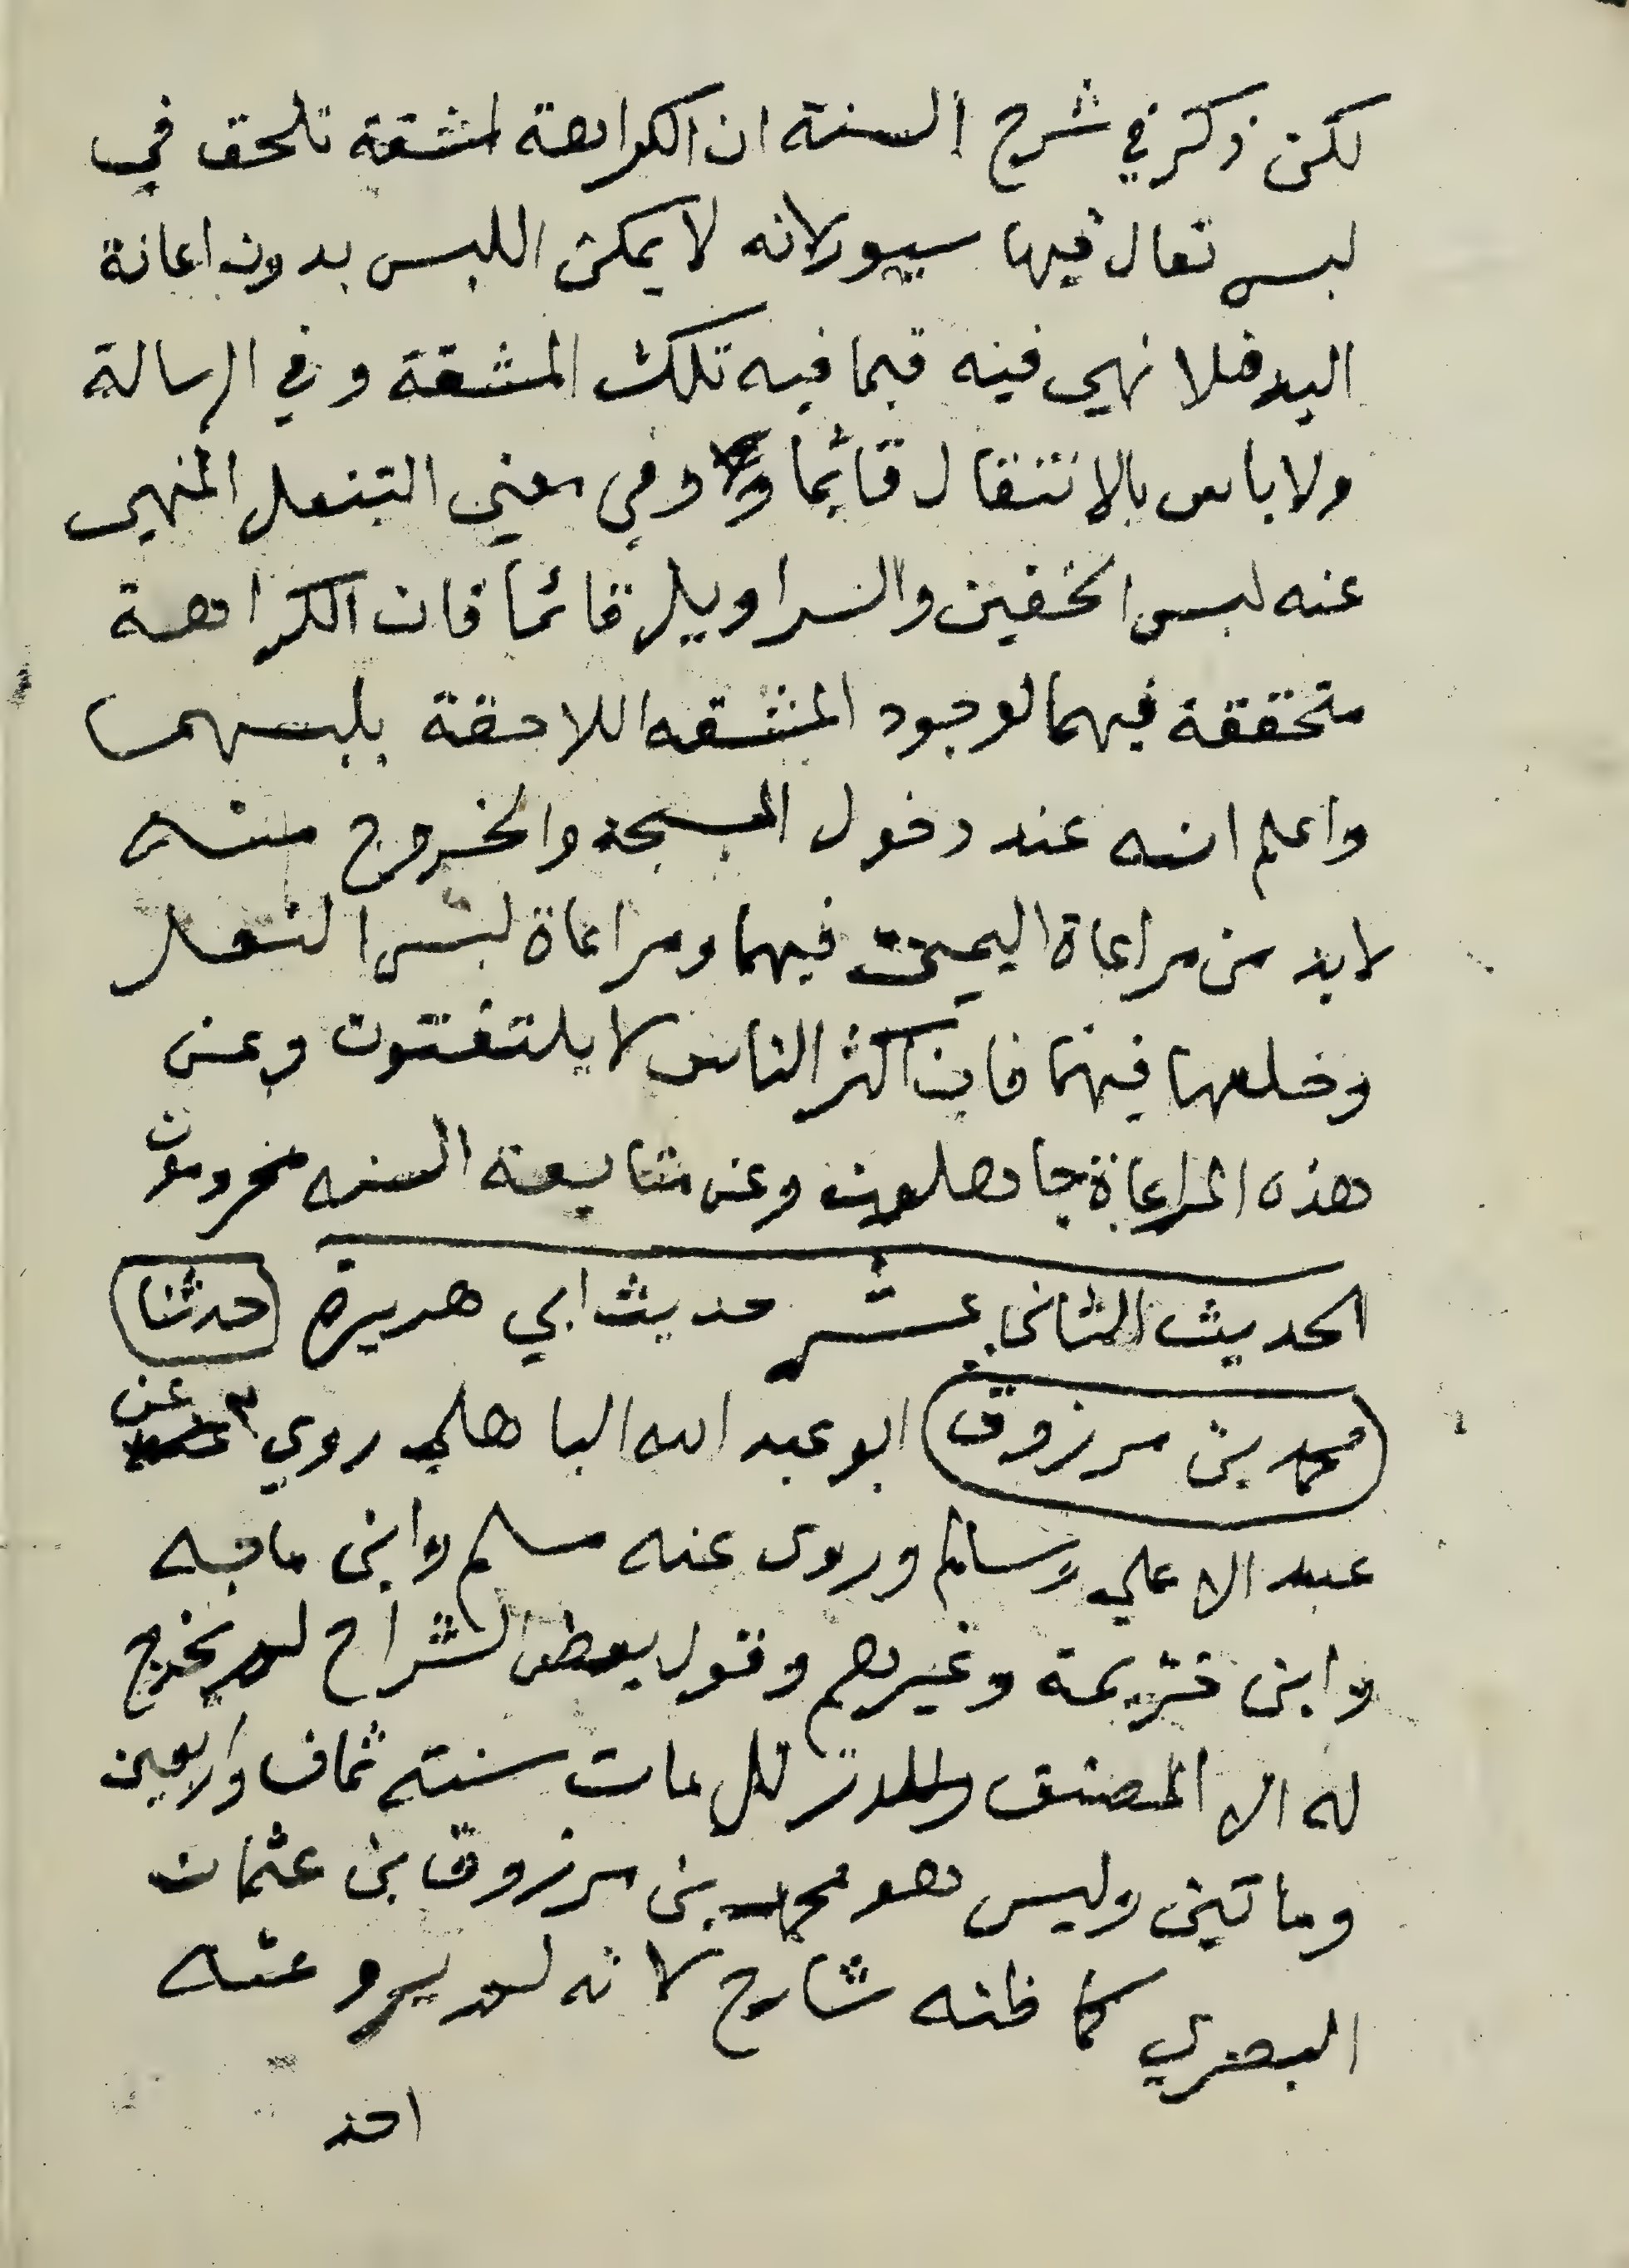 لكن ذكر في شرح السنة ان الكراهة لمشقة تلحق في
لبس نعال فيها سيور لانه لا يمكن اللبس بدون اعانة
اليد فلا نهي فيه فيما فيه تلك المشقة وفي الرسالة
ولا باس بالانتقال قائما وفي معني التنعل المنهي
عنه لبس الخفين والسراويل قائما فان الكراهة
متحققة فيهما لوجود المشقه اللاحقة بلبسهما
واعلم انه عند دخول المسجد والخروج منه
لا بد من مراعاة اليمين فيهما ومراعاة لبس النعل
وخلعها فيهما فان اكثر الناس لا يلتفتون وعن
هذه المراعاة جاهلون وعن متابعة السنه محرومون
الحديث الثاني عشر حديث ابي هريرة حدثنا
محمد بن مرزوق ابو عبد الله الباهلي روي عن
عبد الاعلي وسالم وروي عنه مسلم وابن ماجه
وابن خزيمة وغيرهم وقول بعض الشراح لم يخرج
له الا المصنف زلل مات سنة ثمان واربعين
ومائتين وليس هو محمد بن مرزوق بن عثمان
البصري كما ظنه شارح لانه لم يرو عنه
احد